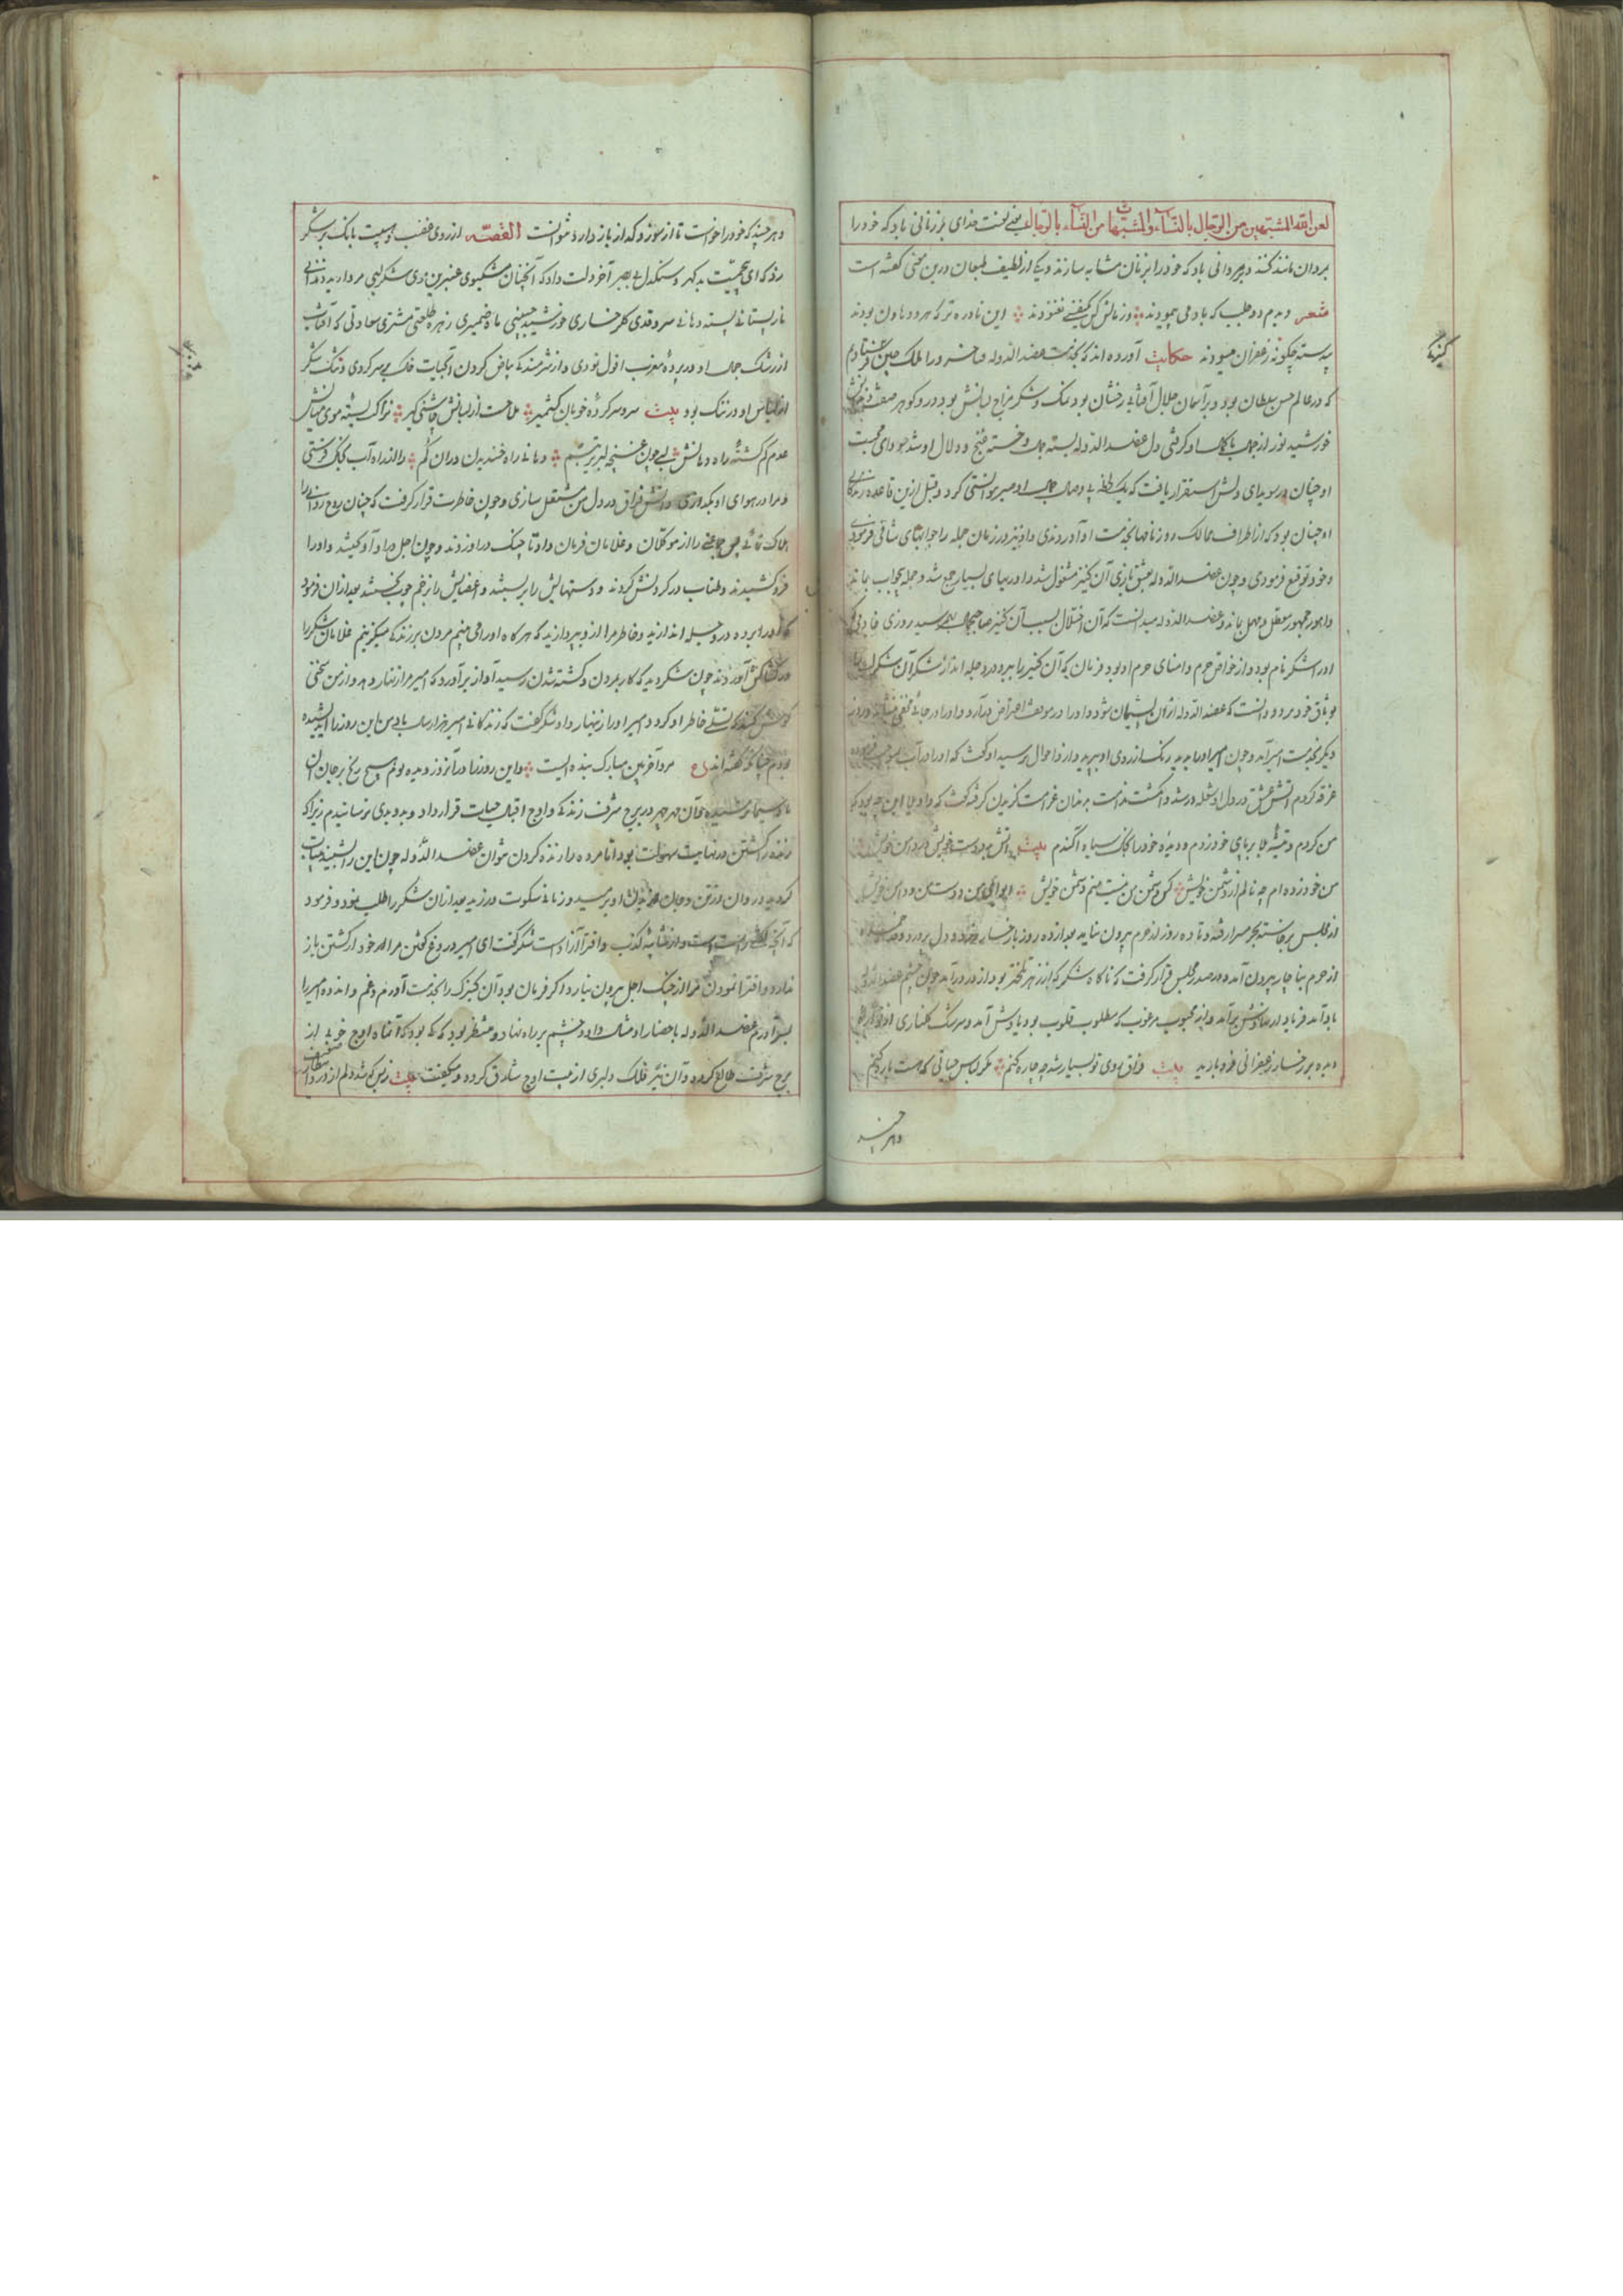 لعن الله المتشبهین من الرجال بالنساء والمتشبهات من النساء بالرجال یعنی لعنت خدای بر زنانی باد که خود را
بمردان مانند کنند و بمردانی باد که خود را بزنان مشابه سازند و یکی از لطیف طبعان درین معنی گفته است
شعر دیدم دو طلب که باد می پیمودند وز مالش کل کیفتی نغنودند این نادره تر که هر دو هاون بودند
پیوسته چگونه زعفران میسودند حکایت آورده اند که بخدمت عضد الدوله فناخسرو را ملک چین کنیزکی فرستادم
که در عالم حسن سلطان بود و بر آسمان جلال آفتابی رخشان بود نمک و شکر مزاج لبانش بود و در و گوهر صفت دندانش
خورشید نور از جمال با کمال او گرفتی دل عضد الدوله بسته جمال و خسته غنج و دلال او شد سودای محبت
او چنان در سویدای دلش استقرار یافت که یک لحظه بی وصال جمال او صبر نتوانستی کرد و قبل ازین قاعده زندگانی
او چنان بود که از اطراف ممالک روزنامها بخدمت او آوردندی و او نیز در زمان جمله را جوابهای شافی فرمودی
و خود توقیع فرمودی و چون عضد الدوله بعشق بازی آن کنیز مشغول شد و اوربهای بسیار جمع شد و جمله بی جواب بماند
و امور جمهور معطل و مهمل بماند و عضد الدوله میدانست که آن اختلال بسبب آن کنیز صاحب جمال بهم رسید روزی خادمی که
او را شکر نام بود و از خواص حرم و امنای حرم او بود فرمان که آن کنیز را ببر و در دجله انداز شکر آن شکر لب را
بوثاق خود برد و دانست که عضد الدوله ازان پشیمان شود و او را در موقف اعتراض درآرد و او را در جائی مخفی بنشاند و روز
دیگر بخدمت امیر آمد و چون امیر او را بدید رنگ از روی او بپرید و ازو احوال پرسید او گفت که او را در آب بموجب فرموده
غرقه کردم آتش عشق در دل او شعله ور شد و انگشت ندامت بدندان غرامت گزیدن گرفت گفت که واویلا این چه بود که
من کردم و تیشه بلا بر پای خود زدم و دیده خود را بچنگ سیاه آگندم بیت آتش بدو دست خویش در دامن خویش
من خود زده ام چه نالم از دشمن خویش کس دشمن من نیست منم دشمن خویش ای وای من و دست من و دامن خویش
از مجلس برخاسته بحرمسرا رفته و تا ده روز از حرم بیرون نیامد بعد از ده روز با رخساره زرد و دل پردرد و
از حرم بناچار بیرون آمد و در صدر مجلس قرار گرفت که ناگاه شکر که از زهر تلختر بود از در درآمد چون چشم عضد الدوله
باو آمد فریاد از نهادش برآمد و از محبوب مرغوب که مطلوب قلوب بود یادش آمد و سرشک گلناری از
دیده بر رخسار زعفرانی فرو بارید بیت فراق روی تو بسیار شد چه چاره کنم مگر لباس حیاتی که هست پاره کنم
و هر چند
و هر چند که خود را خواست تا از سوز و گداز باز دارد نتوانست القصه از روی غضب و هیبت بانگ بر شکر
زد که ای بی حمیت بدگهر و سنگدل بی بصر آخر دلت داد که آنچنان مشکبوی عنبرین موی شکر لبی مروارید دندانی
نار پستانی پسته دهانی سرو قدی گلرخساری خورشید جبینی ماه ضمیری زهره طلعتی مشتری سعادتی که آفتاب
از رشک جمال او در پرده مغرب افول نمودی و از شرمندگی بیاض گردن او آبحیات خاک بر سر کردی و تنگ شکر
از لباس او در تنگ بود بیت سر و سرکرده خوبان کشمیر ملاحت از لبانش چاشنی گیر نزاکت بسته موی میانش
عدم گم گشته راه دهانش لبی چون غنچه لبریز تبسم دهانی راه خندیدن دران گم والنده راه آب بچنگ فرستی
و مرا در هوای او بگدازی و آتش فراق در دل من مشتعل سازی و چون خاطرت قرار گرفت که چنان روح روانی را
هلاک نمائی پس جماعتی را از موکلان و غلامان فرمان داد تا چنگ در او زدند و چون اجل در او آویختند و او را
فرو کشیدند و طناب در گردنش کردند و دستهایش را بر بستند و اعضایش را بزخم چوب بخستند بعد ازان فرمود
که او را برده در دجله اندازید و خاطر مرا ازو بپردازید که هر گاه او را می بینم مردن بر زندگی میگزینم غلامان شکر را
در کشاکش آوردند چون شکر دید که کار بمردن و کشته شدن رسید آواز برآورد که امیر مرا زنهار دهد و از من سخنی
گوش کند که تسلی خاطر او گردد امیر او را زنهار داد شکر گفت که زندگانی امیر هزار سال باد من این روز را اندیشیده
بودم چنانکه گفته اند ع مرد آخر بین مبارک بنده ایست و این روز را در آنروز دیده بودم و هیچ رنج بر جان آن
ماه سیما نرسانیدم و آن مهر چهر در برج شرف زندگی و اوج اقبال حیات قرار داد و بدو بدی نرسانیدم زیرا که
زنده را کشتن در نهایت سهولت بود و اما مرده را زنده کردن نتوان عضد الدوله چون این را شنید حیات
گردید روان در تن و جان در بدن او برسید و زمانی سکوت ورزید بعد ازان شکر را طلب نمود و فرمود
که آنچه گفتی راست است و از شایبه کذب و افترا آزاد است شکر گفت ای امیر دروغ گفتن مرا از کشتن باز
ندارد و افترا نمودن مرا از چنگ اجل بیرون نیارد و اگر فرمان بود آن کنیزک را بخدمت آورم و غم و اندوه امیر را
بسر آورم عضد الدوله باحضار او مثال داد و چشم بر راه نهاد و منتظر بود که کی بود که آن ماه اوج خوبی از
برج شرف طالع گردد و آن نیر فلک دلبری از بیت اوج شارق گردد و میگفت بیت ز بس که شد دلم از درد انتظار